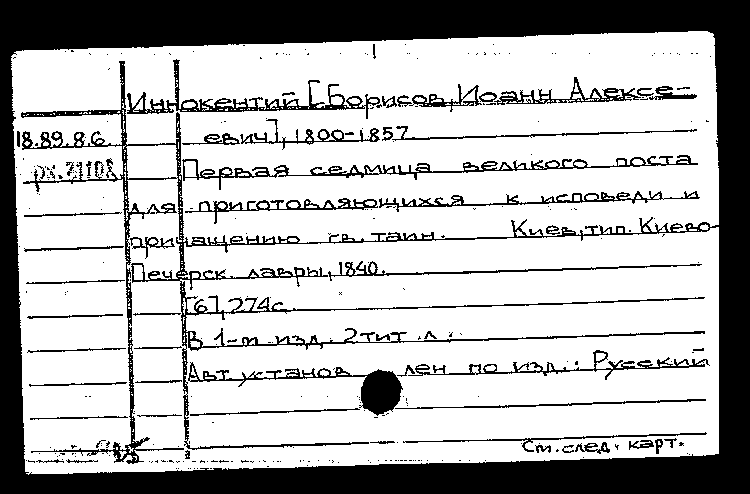 Иннокентий [Борисов, Иоанн Алексе-
18.89.8.6. евич], 1800-1857.
рх.71108 Первая седмица великого поста
для приготовляющихся к исповеди и
причащению св. таин. Киев, тип. Киево-
Печерск. лавры, 1840.
[6], 274с.
В 1-м изд. 2 тит. л.:
Авт. установ лен по изд.: Русский
См. след. карт.